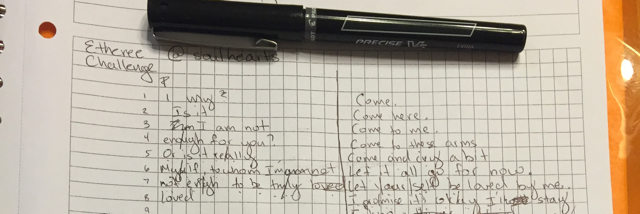 PRECISE V5
Etheree @sadhearts
Challenge
1 1 Why
2 Is it
3 I am not
4 enough for you?
5 Or is it really
6 Myself, to whom I'm not
7 not enough to be truly loved
8 loved
9
Come.
Come here.
Come to me.
Come to these arms
Come and cry a bit
Let it all go for now.
Let yourself be loved by me.
I promise it's okay I'll stay